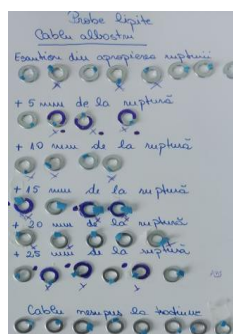 Probe lipite
Cablu albastru
Esantion din apropierea rupturii
+ 5 mm de la ruptură
+ 10 mm de la ruptură
+ 15 mm de la ruptură
+ 20 mm de la ruptură
+ 25 mm de la ruptură
Cablu nesupus la tracțiune